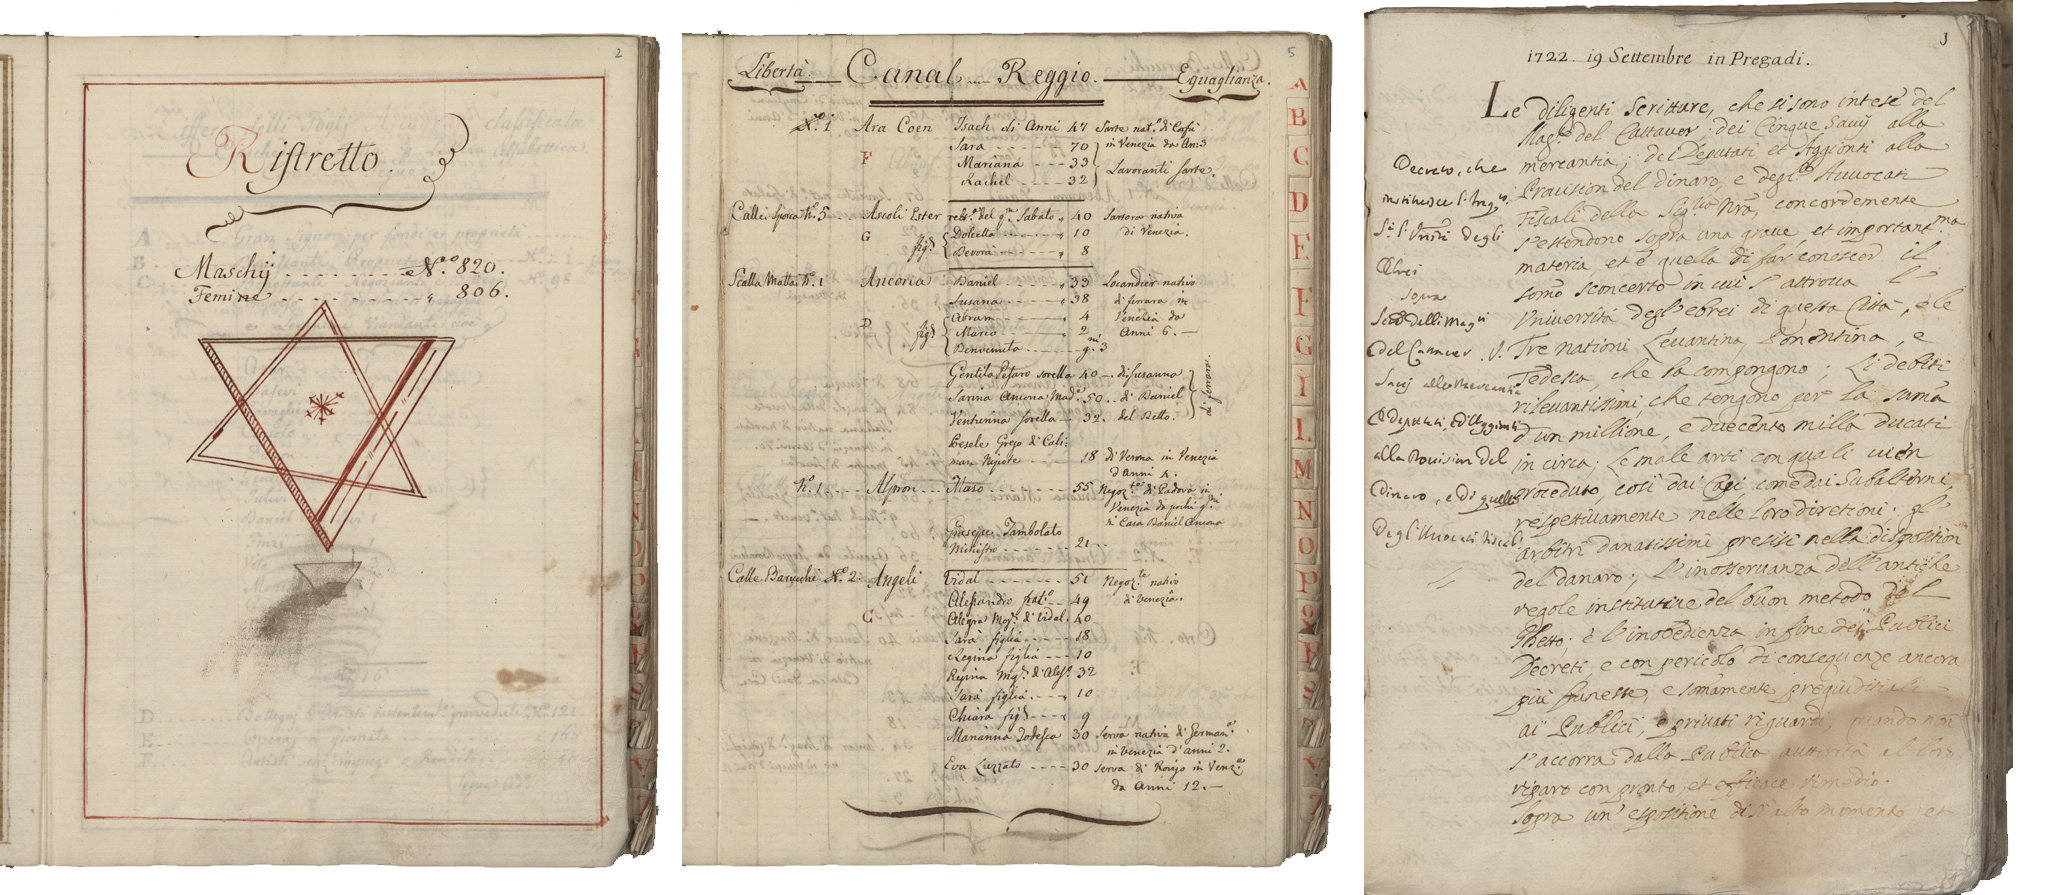 2
Ristretto.
Maschij . . . . . . . . N.ro 820.
Femine . . . . . . . . „ 806.
5
Libertà. Canal Reggio. Eguaglianza.
N.o 1 Ara Coen Isach di Anni 47 Sarte nat.o di Corfù
Sara 70 in Venezia da Anni
F Mariana 33 Lavoranti sarte.
Rachel 32
Calle Sporca N.o 5 Ascoli Ester rel.ta del q.m Sabato 40 Sartora nativa
G figl. Dolcetta 10 di Venezia.
Devora 8
Scalla Matta N.o 1 Ancona Daniel 33 Locandier nativo
Susana 38 di ferrara in
Abram 4 Venezia da
figl. Marco 2 Anni 6.
Benvenuta 3
Gentila Pesaro sorella 40 di Susanna
Sanna Ancona Mad.e 50 di Daniel
Venturina sorella 32 del Detto.
di ferrara.
Nipote 18 di Verona in Venezia
d'Anni
N.o 1 Alpron Maso 55 Negoz.te di Padova in
Venezia da pochi
di Casa Daniel Ancona
Giuseppe Tambolato
Ministro 21
Calle Barucchi N.o 2 Angeli Vidal 51 Negoz.te nativo
Alessandro frat.o 49 di Venezia.
G Alegra Mog.e di Vidal 40
Sara figlia 18
Regina figlia 10
Regina Mog.e di Aless.o 32
Sara figlia 10
Chiara figl. 9
Marianna Todesca 30 serva nativa di German.a
in Venezia d'anni 2.
Eva Luzzato 30 serva di Rovigo in Venez.a
da Anni 12.
A
B
C
D
E
F
G
I
L
M
N
O
P
3
1722. 19 Settembre in Pregadi.
Le diligenti Scritture, che si sono intese del
Mag.to del Cattaver; dei Cinque Savij alla
mercantia; dei Deputati et Aggionti alla
Provision del dinaro, e degl'Avvocati
Fiscali della Sig.ria Nra, concordemente
s'estendono sopra una grave et important.ma
materia, et è quella di far conoscer il
sommo sconcerto in cui s'attrova l'
Università degl'ebrei di questa Città, e le
Tre nationi Levantina, Ponentina, e
Tedesca, che la compongono; Li debiti
rilevantissimi, che tengono per la suma
d'un millione, e duecento milla ducati
in circa; Le male arti con quali vien
proceduto, così dai Capi, come dai Subalterni,
respettivamente nelle loro diretioni; gl'
arbitrij danatissimi presisi nella disposition
del danaro; L'inosservanza dell'antiche
regole institutive del buon metodo del
Ghetto; e l'inobedienza in fine dei Publici
Decreti e con pericolo di consequenze ancora
più funeste, e somamente pregiuditiali
ai Publici, e privati riguardi, quando non
s'accorra dalla Publica auttorità al loro
riparo con pronto, et efficace rimedio.
Sopra un'espositione di sì alto momento et
Decreto, che
instituisce
degli
Ebrei
sopra
delli Mag.ti
del Cattaver, V.
Savij alla Mercantia
Deputati, ed Aggionti
alla Provision del
Dinaro, e di quello
degl'Avocati Fiscali